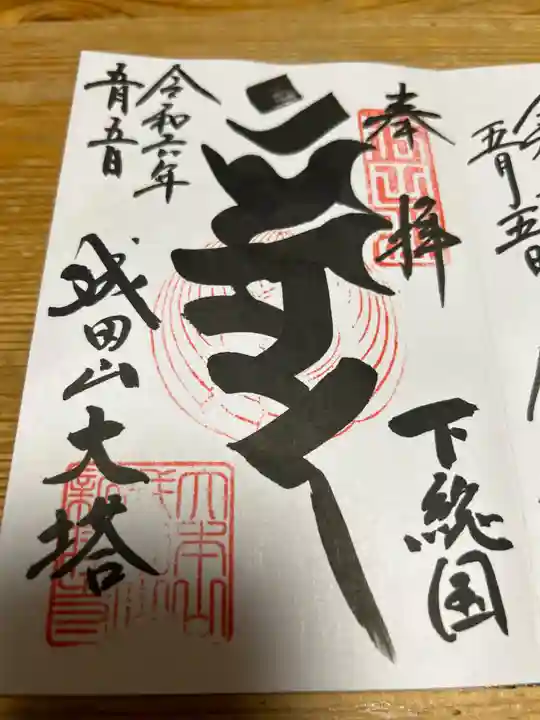 奉拝
下総国
令和六年
五月五日
成田山大塔
五月五日